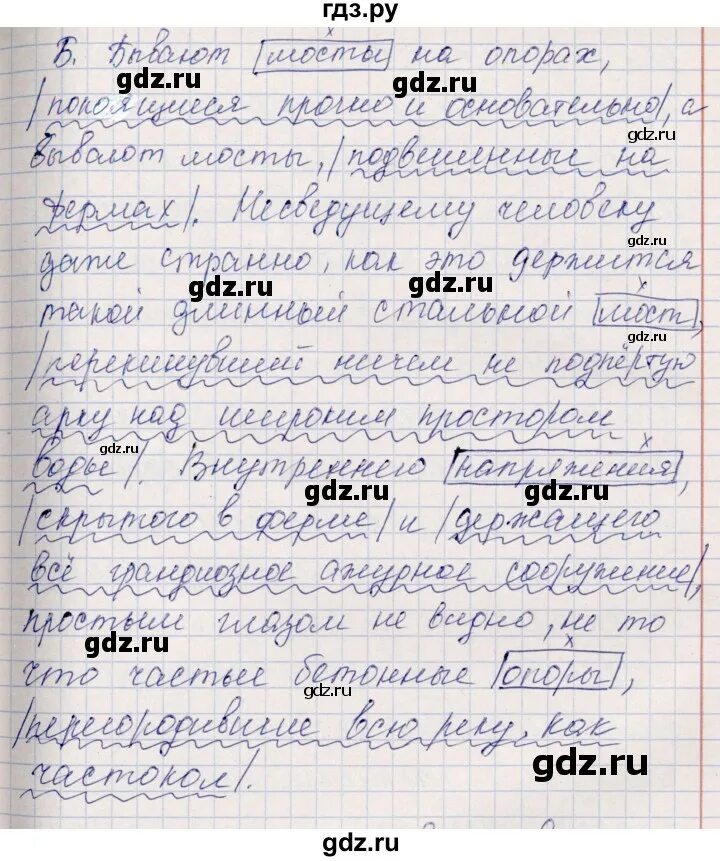 гдз.ру
Б. Бывают мосты на опорах,
gdz.ru gdz.ru
покоящиеся прочно и основательно, а
gdz.ru
бывают мосты, подвешенные на
фермах. Несведущему человеку
gdz.ru
даже странно, как это держится
gdz.ru gdz.ru
такой длинный стальной мост,
перекинувший ничем не подпёртую
арку над широким простором
воды. Внутреннего напряжения,
gdz.ru gdz.ru
скрытого в ферме и держащего
всё грандиозное ажурное сооружение,
простым глазом не видно, не то
gdz.ru gdz.ru
что частые бетонные опоры,
gdz.ru
перегородившие всю реку, как
частокол.
gdz.ru gdz.ru
gdz.ru